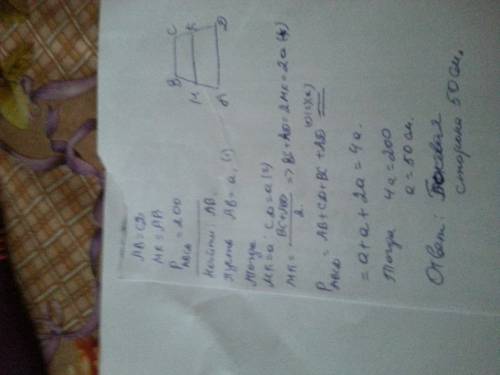 AB=CD
MK=AB
P ABCD = 200
Найти: AB.
Пусть AB=a. (1)
Тогда
MK=a; CD=a (2)
MK = (BC+AD)/2 => BC+AD=2MK=2a (3)
P ABCD = AB+CD+BC+AD (1)(2)(3)
= a+a+2a=4a.
Тогда 4a=200
a=50 см.
Ответ: Боковая
сторона 50 см.
B C
M K
A D